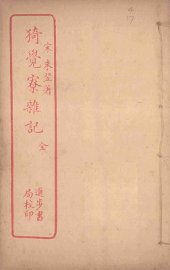 宋 朱翌著
猗覺寮雜記 全
進步書
局校印